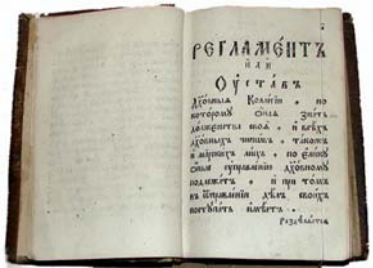 РЕГЛАМЕ́НТЪ
ИЛИ
Оу҆ста́въ
Дꙋхо́вныѧ Колле́гїи , по
которомꙋ сїѧ́ѧ зна́ть
до́лженства своѧ̀ , и всѣ́хъ
дꙋхо́вныхъ чинѡ́въ , та́кожъ
и мїрски́хъ ли́цъ , по ели́кꙋ
сїѧ́ѧ ᲂуправле́нїю дꙋхо́вномꙋ
подлежа́тъ , и при то́мъ
въ ᲂуправле́нїи дѣ́лъ свои́хъ
постꙋпа́ть имѣ́етъ .
Раздѣлѧ́етсѧ